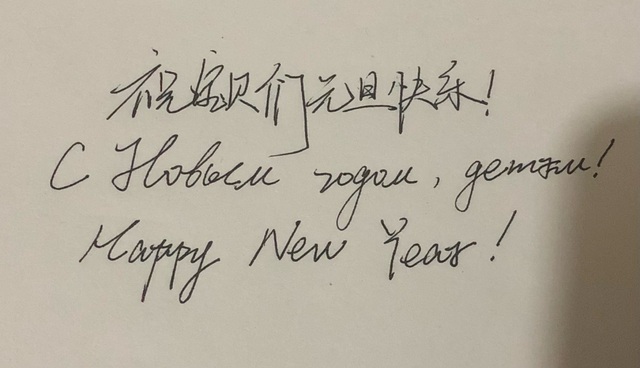 祝宝贝们元旦快乐!
С Новым годом, детям!
Happy New Year!